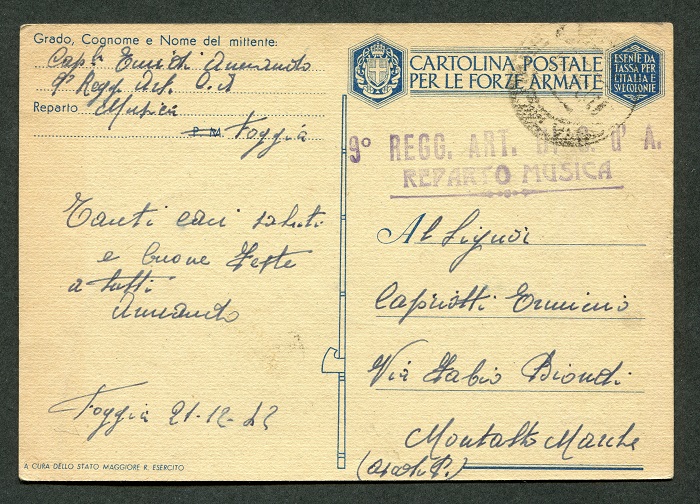 Grado, Cognome e Nome del mittente:
Cap.le Emidi Armando
9° Regg. Art. C. A
Reparto Musica
P. M. Foggia
CARTOLINA POSTALE
PER LE FORZE ARMATE
ESENTE DA
TASSA PER
L'ITALIA E
SUE COLONIE
9° REGG. ART. d'A.
REPARTO MUSICA
Tanti cari saluti
e buone Feste
a tutti
Armando
Foggia 21-12-42
Al Signor
Capriotti Erminio
Via Fabio Biondi
Montalto Marche
(Ascoli P.)
A CURA DELLO STATO MAGGIORE R. ESERCITO